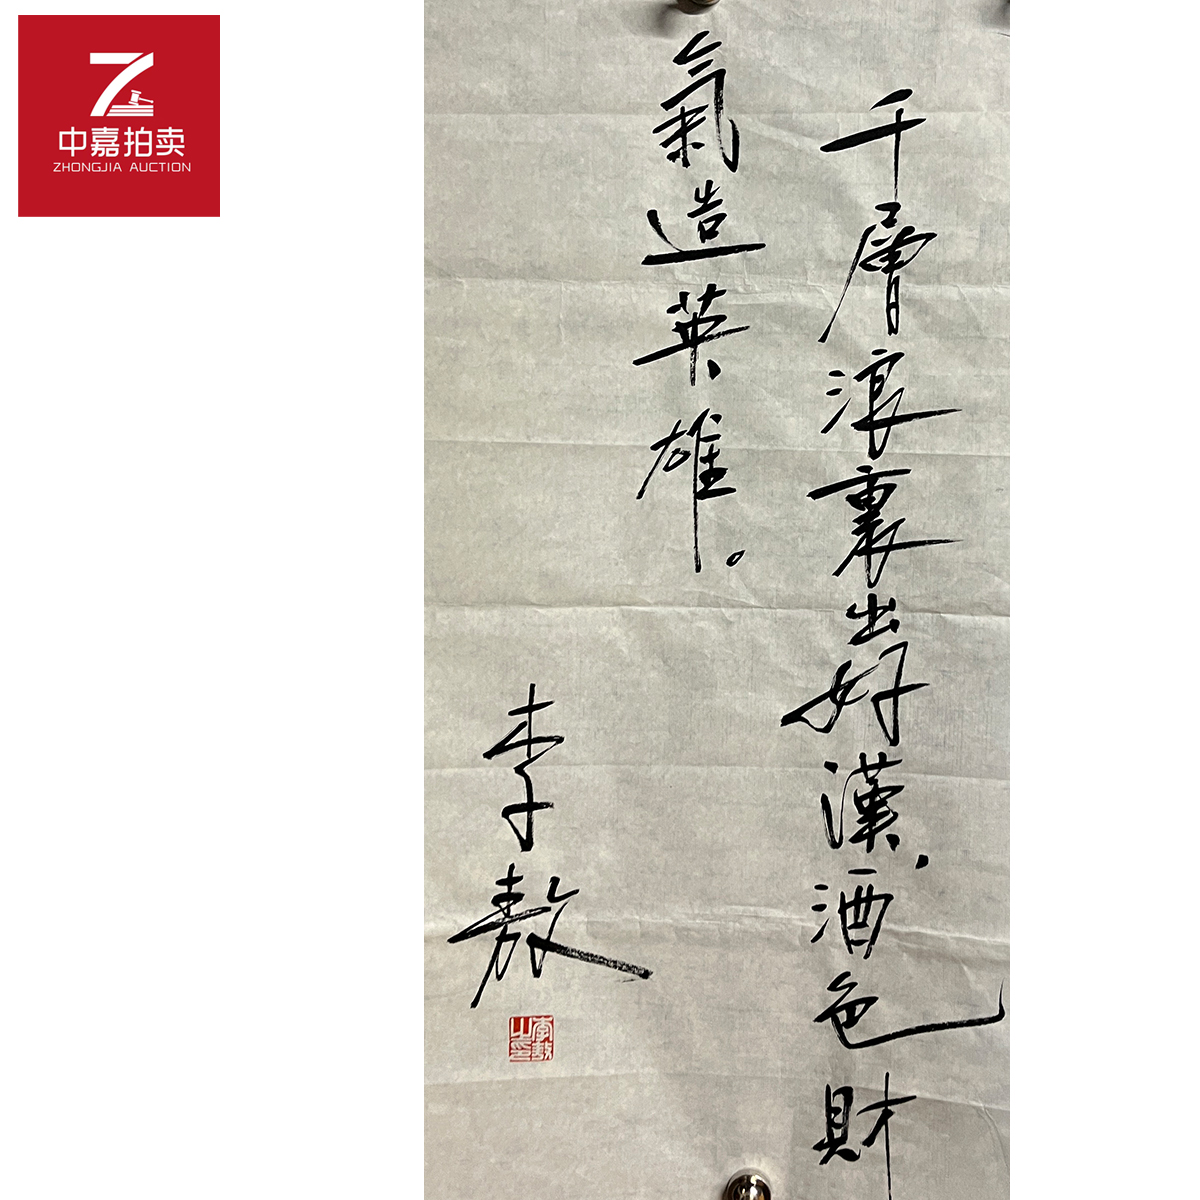 中嘉拍卖
ZHONGJIA AUCTION
千層浪裏出好漢，酒色財
氣造英雄。
李敖
李敖之印